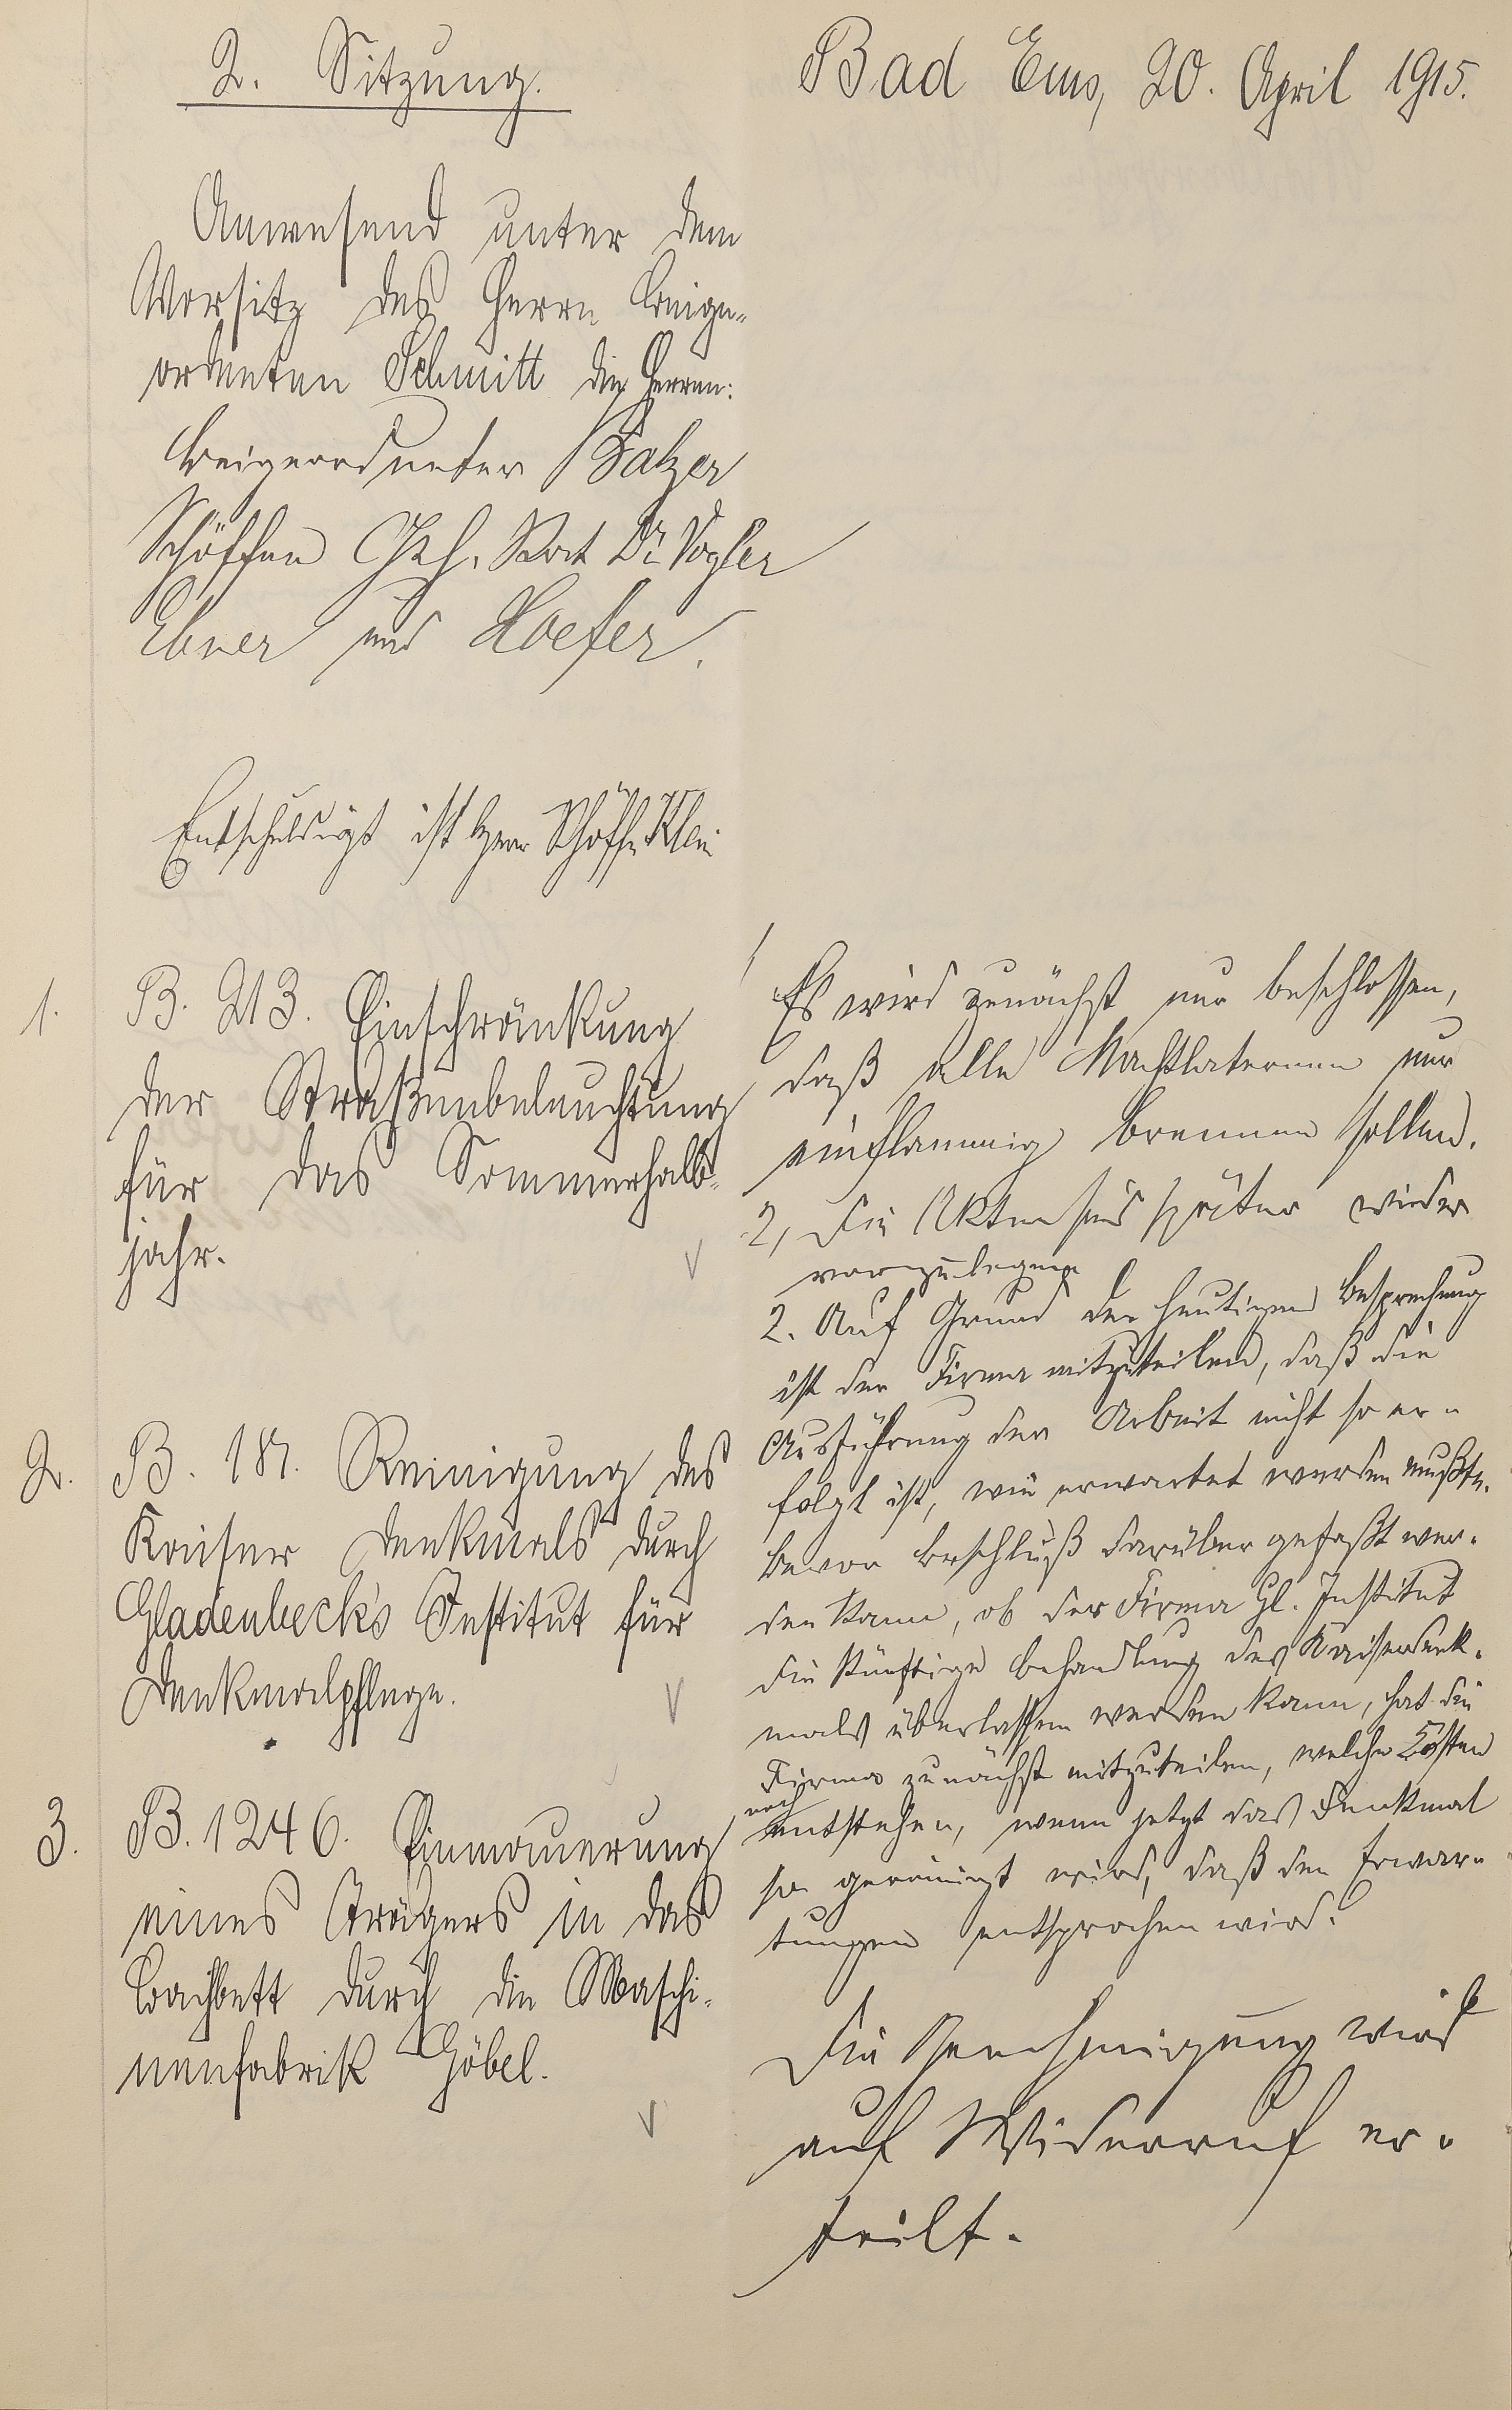 2. Sitzung.
Bad Ems, 20. April 1915.
Anwesend unter dem
Vorsitz des Herrn Beige-
ordneten Schmitt die Herren:
Beigeordneter Balzer
Schöffen Geh. Rat Dr. Vogler
Ebner und Hoefer.
Entschuldigt ist Herr Schöffe Klein
1. B. 213. Einschränkung
der Straßenbeleuchtung
für das Sommerhalb-
jahr.
Es wird zunächst nur beschlossen,
daß alle Nachtlaternen nur
einflammig brennen sollen.
2, Die Akten sind später wieder
vorzulegen
2. B. 187. Reinigung des
Kaiser Denkmals durch
Gladenbeck's Institut für
Denkmalpflege.
2. Auf Grund der heutigen Besprechung
ist der Firma mitzuteilen, daß die
Ausführung der Arbeit nicht so er-
folgt ist, wie erwartet werden mußte.
Bevor Beschluß darüber gefaßt wer-
den kann, ob der Firma Gl. Institut
die künftige Behandlung des Kaiserdenk-
mals überlassen werden kann, hat die
Firma zunächst mitzuteilen, welche Kosten
noch
entstehen, wenn jetzt das Denkmal
so gereinigt wird, daß den Erwar-
tungen entsprochen wird.
3. B. 1246. Einmauerung
eines Trägers in das
Bachbett durch die Maschi-
nenfabrik Göbel.
Die Genehmigung wird
auf Widerruf er-
teilt.